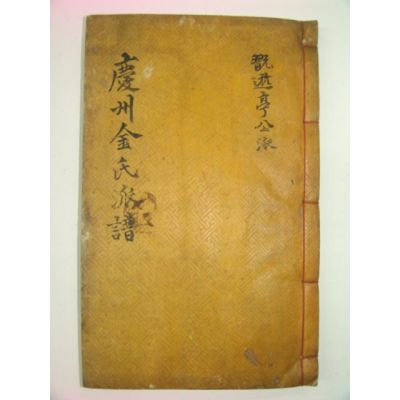 慶州金氏派譜
亭公派